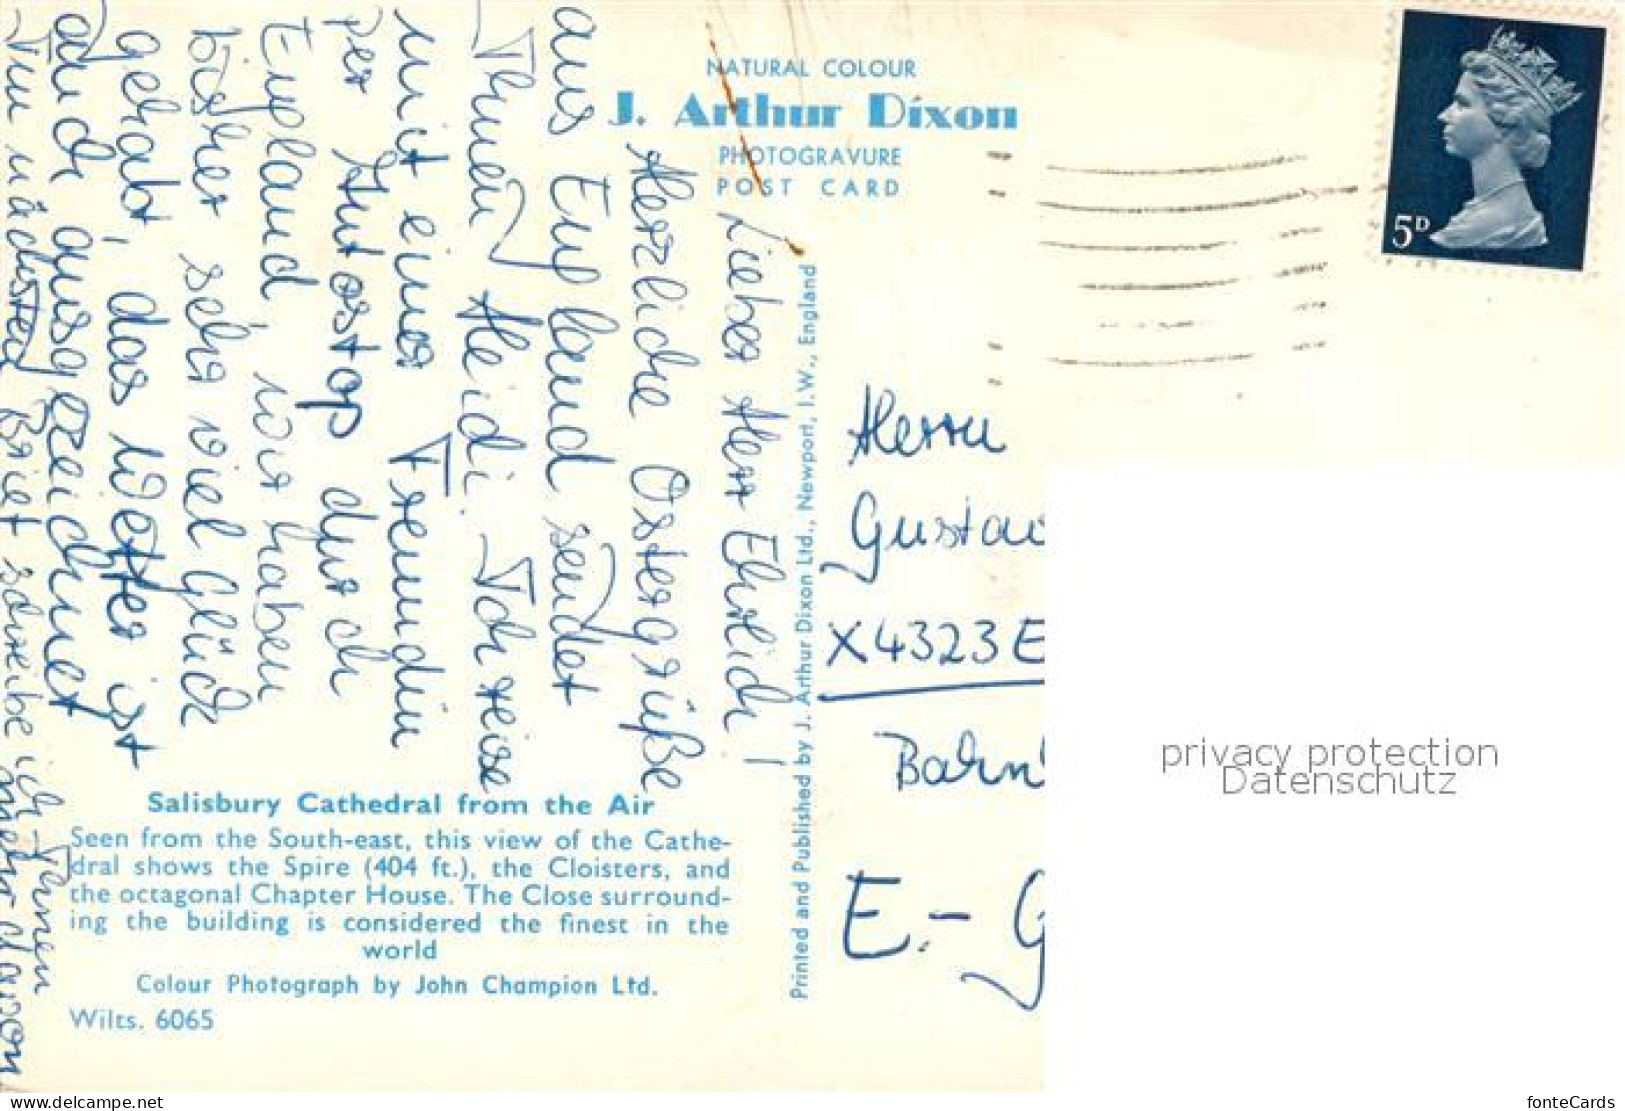 NATURAL COLOUR
J. Arthur Dixon
PHOTOGRAVURE
POST CARD
Lieber Herr Ehrlich!
Herzliche Ostergrüße
aus England sendet
Ihnen Heidi. Ich reise
mit einer Freundin
per Autostop durch
England, wir haben
bisher sehr viel Glück
gehabt, das Wetter ist
auch ausgezeichnet
Im nächsten Brief schreibe ich Ihnen
mehr davon
Salisbury Cathedral from the Air
Seen from the South-east, this view of the Cathe-
dral shows the Spire (404 ft.), the Cloisters, and
the octagonal Chapter House. The Close surround-
ing the building is considered the finest in the
world
Colour Photograph by John Champion Ltd.
Wilts. 6065
Printed and Published by J. Arthur Dixon Ltd., Newport, I.W., England
5D
Herrn
Gustav
X4323 E
Bahn
E.- G
privacy protection
Datenschutz
https://www.delcampe.net
fonteCards